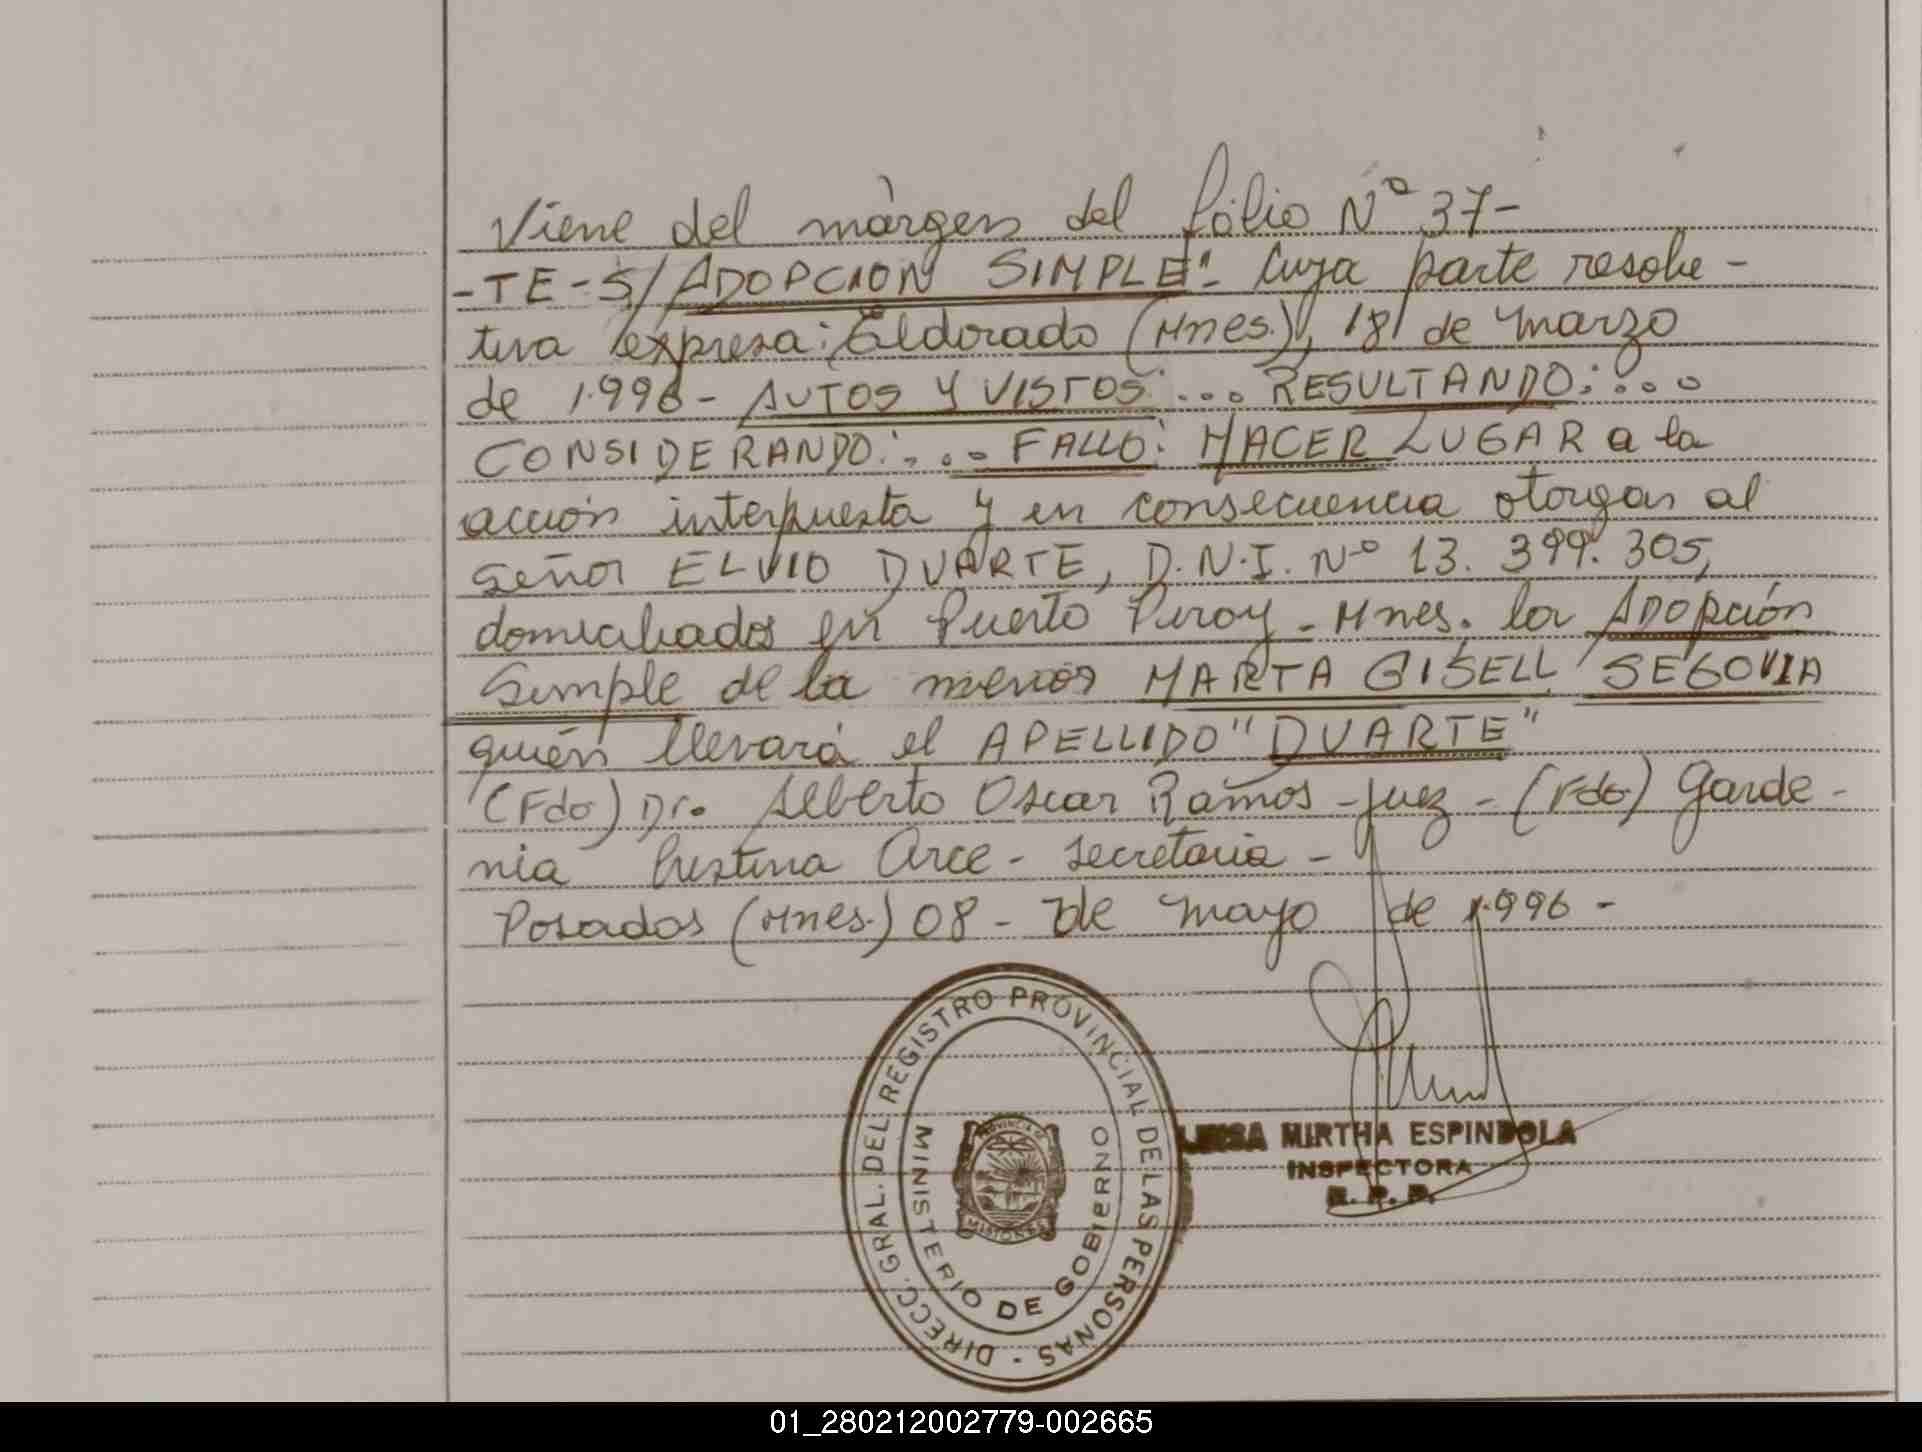 Viene del márgen del fólio Nº 37-
-TE-S/ADOPCION SIMPLE"- Cuya parte resolu-
tiva expresa: Eldorado (Mnes.), 18 de Marzo
de 1.996- AUTOS Y VISTOS: ... RESULTANDO: ...
CONSIDERANDO: ... FALLO: HACER LUGAR a la
acción interpuesta y en consecuencia otorgar al
Señor ELVIO DUARTE, D.N.I. Nº 13.399.305,
domiciliados en Puerto Piray - Mnes. la ADOpción
Simple de la menor MARTA GISELL SEGOVIA
quién llevará el APELLIDO "DUARTE"
(Fdo) Dr. Alberto Oscar Ramos - Juez - (Fdo) Garde-
nia Cristina Arce - Secretaria -
Posadas (Mnes.) 08 - de Mayo de 1.996 -
DIRECC. GRAL. DEL REGISTRO PROVINCIAL DE LAS PERSONAS -
MINISTERIO DE GOBIERNO
PROVINCIA DE
MISIONES
MIRTHA ESPINDOLA
INSPECTORA
R. P. P.
01_280212002779-002665